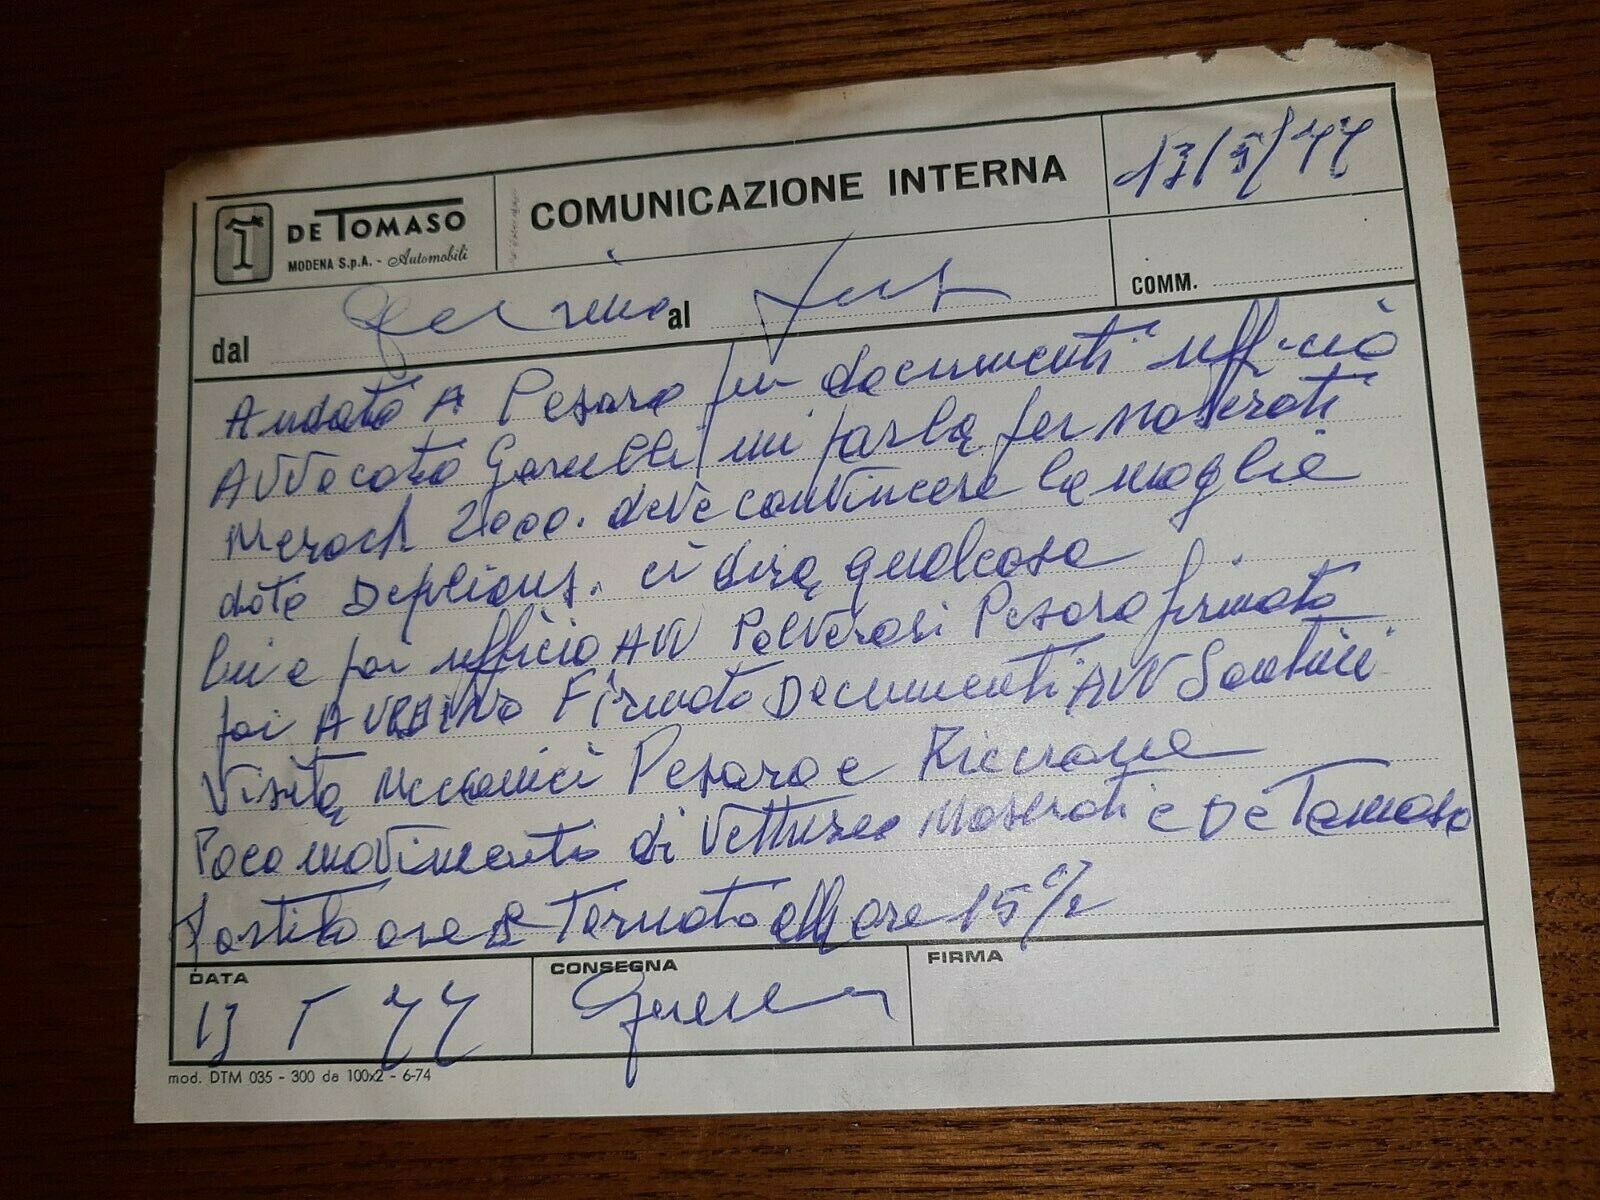 DE TOMASO
MODENA S.p.A. - Automobili
COMUNICAZIONE INTERNA
13/5/77
dal
al
COMM.
Andato A Pesaro per documenti ufficio
Avvocato mi parla per Maserati
Merack 2000. deve convincere la moglie
dato Deplians. ci dira qualcosa
lui e poi ufficio AVV Polverari Pesaro firmato
poi A URBINO Firmato Documenti AVV Santini
Visita Meccanici Pesaro e Riccione
Poco movimento di Vetture Maserati e De Tomaso
Partito ore 8 Tornato alle ore 15 1/2
DATA
13 5 77
CONSEGNA
FIRMA
mod. DTM 035 - 300 da 100x2 - 6-74